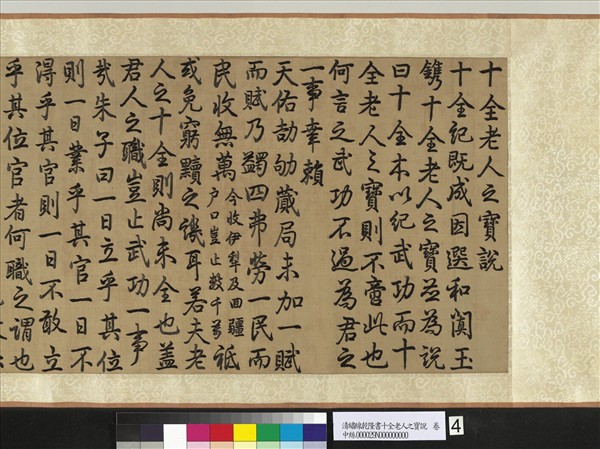 十全老人之寶說
十全紀既成因選和闐玉
鐫十全老人之寶並為說
曰十全本以紀武功而十
全老人之寶則不啻此也
何言之武功不過為君之
一事幸賴
天佑劼劬蕆局未加一賦
而賦乃蠲四弗勞一民而
民收無萬今收伊犂及回疆戶口豈止數千萬祗
或免窮黷之譏耳若夫老
人之十全則尚未全也蓋
君人之職豈止武功一事
哉朱子曰一日立乎其位
則一日業乎其官一日不
得乎其官則一日不敢立
乎其位官者何職之謂也
清繡線乾隆書十全老人之寶說 卷
中絲000029N000000000
4